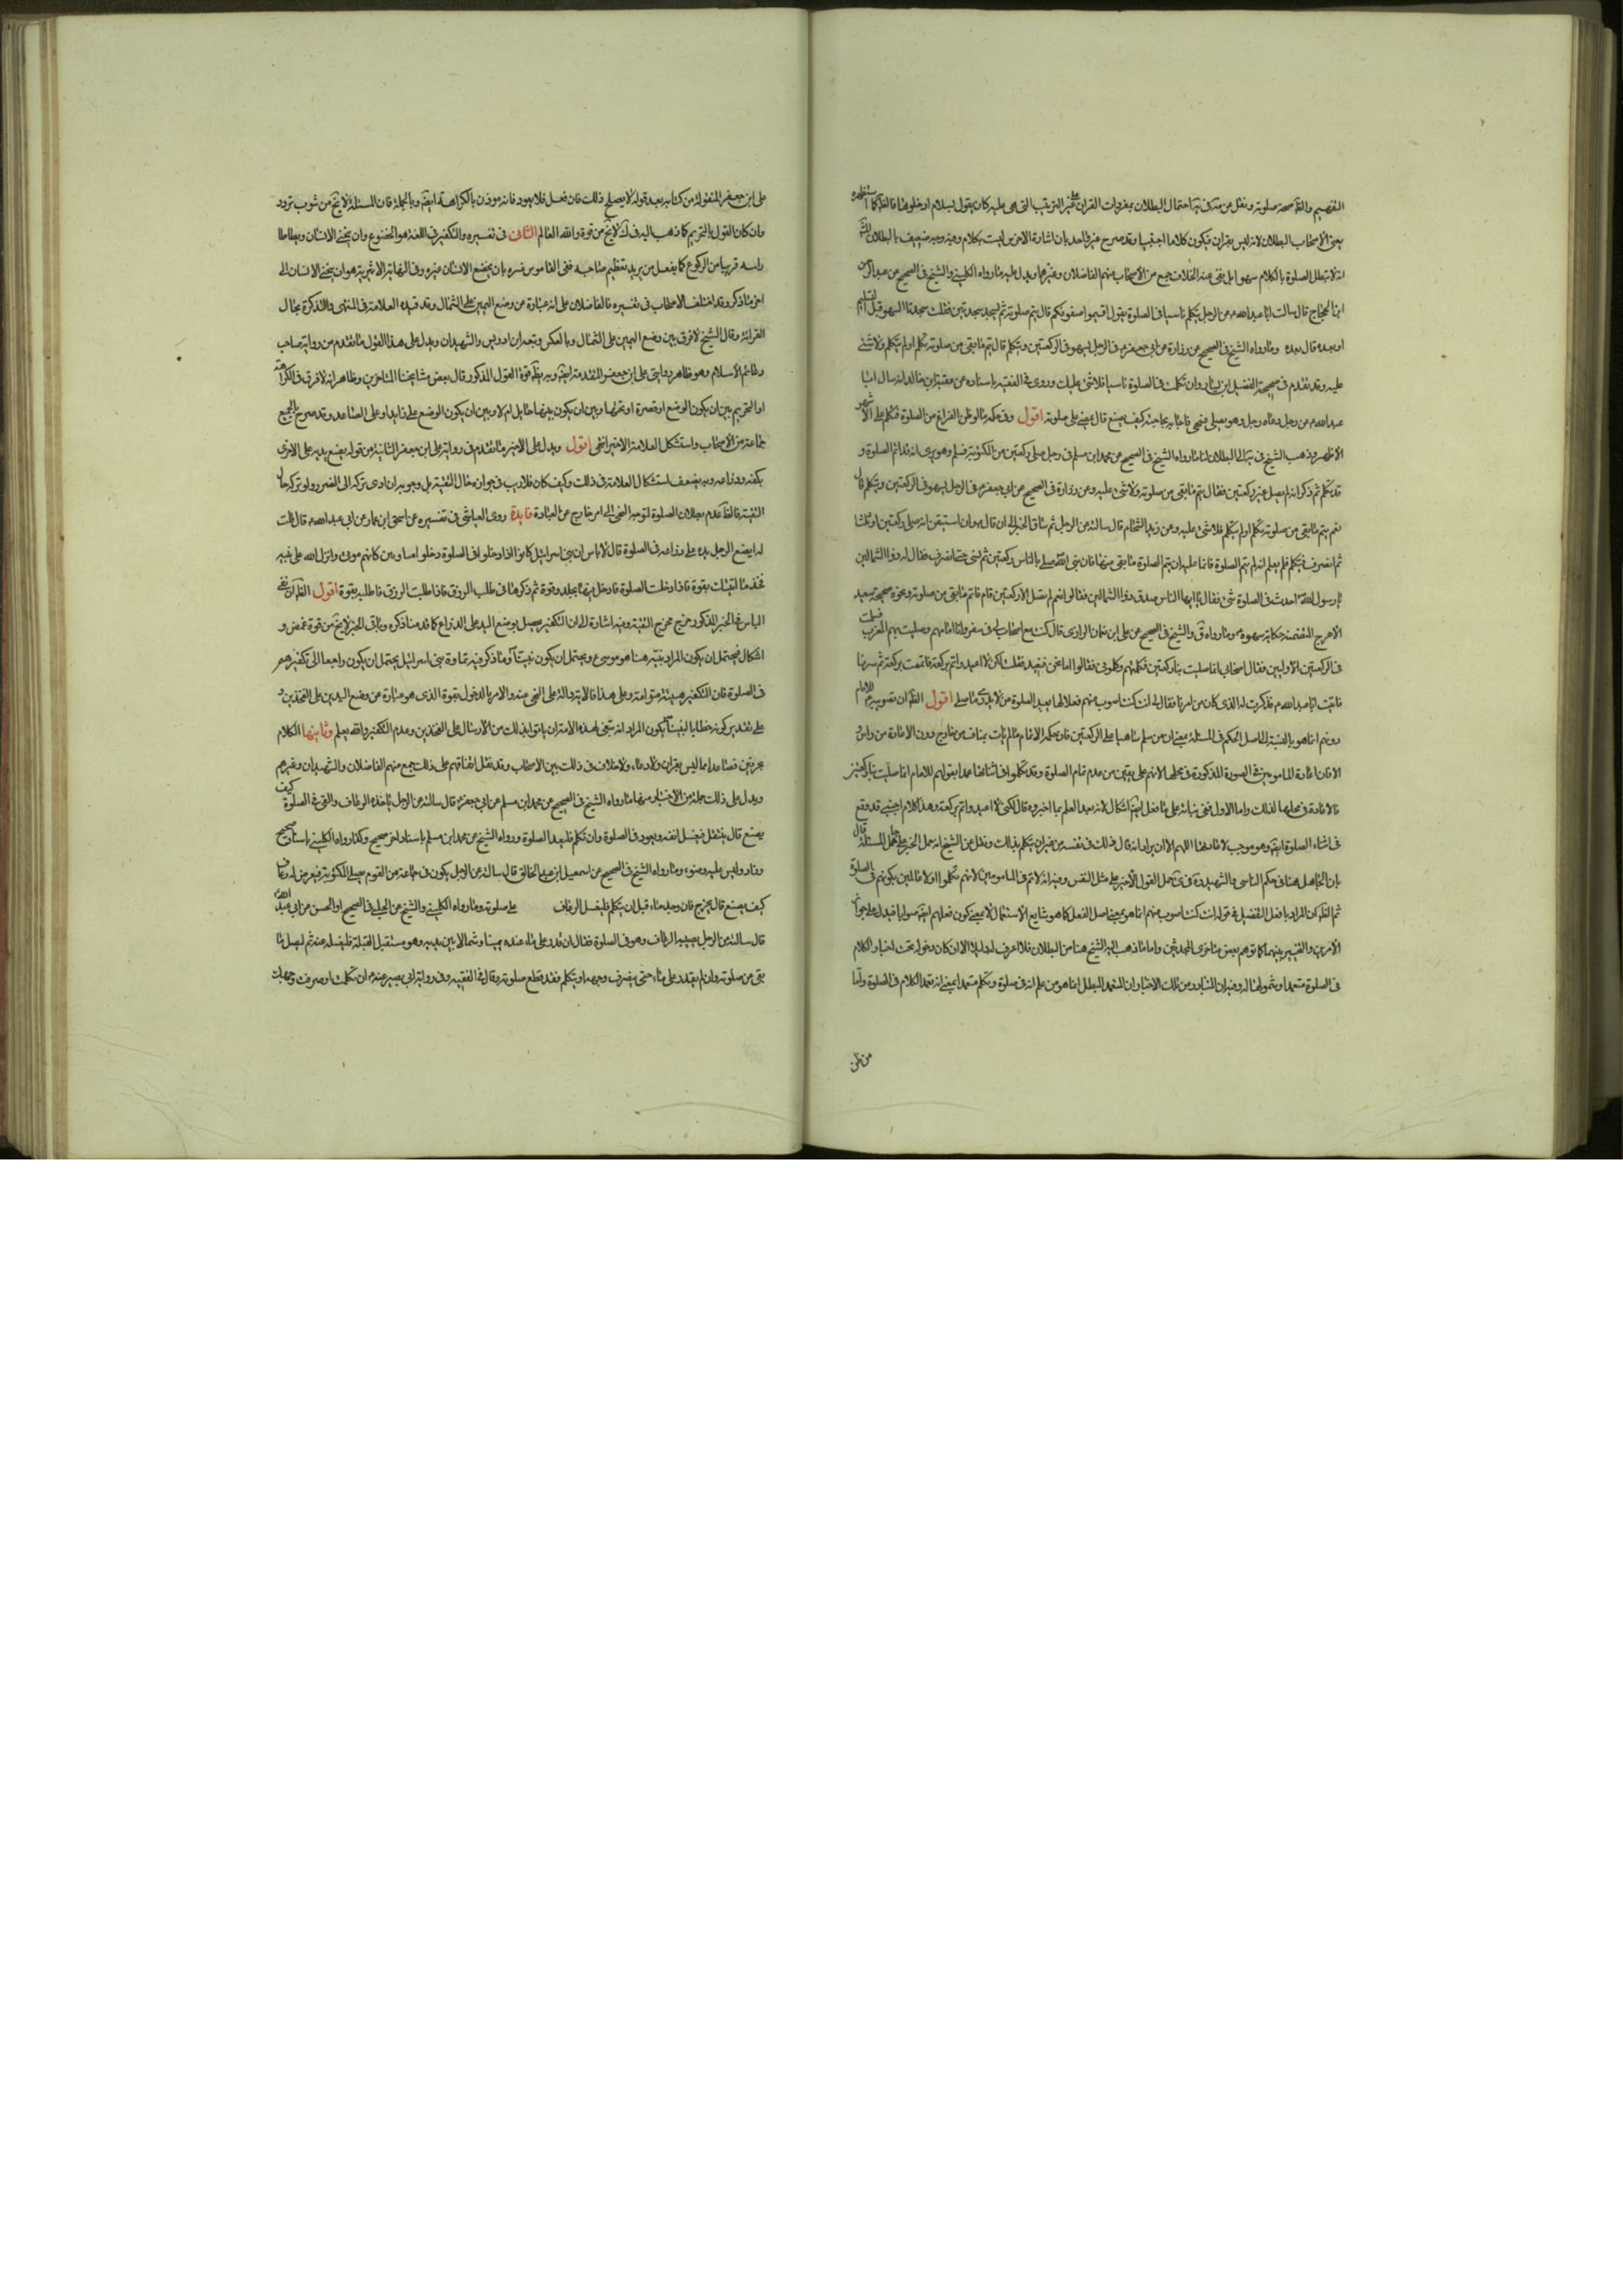 صحة صلوته ونقل عن احتمال البطلان بمفردات القران على غير الترتيب التي هي عليه كان يقول بسلام ادخلوها
بعض الاصحاب البطلان لانه ليس بقران فيكون كلاما اجنبيا وقد صرح غير واحد بان اشارة الاخرس ليست بكلام وفيه وجه ضعيف بالبطلان
انه لا تبطل الصلوة بالكلام سهوا بل نفى عنه الخلاف جمع من الاصحاب منهم الفاضلان وغيرهما ويدل عليه مارواه الكليني والشيخ في الصحيح عن عبد الرحمن
ابن الحجاج قال سالت ابا عبد الله عن الرجل يتكلم ناسيا في الصلوة يقول اقيموا صفوفكم قال يتم صلوته ثم يسجد سجدتين فقلت سجدتا السهو قبل التسليم
او بعده قال بعده ومارواه الشيخ في الصحيح عن زرارة عن ابي جعفر في الرجل يسهو في الركعتين ويتكلم قال يتم مابقي من صلوته تكلم اولم يتكلم ولا شئ
عليه وقد تقدم في صحيحة الفضيل ابن يسار وان تكلمت في الصلوة ناسيا فلا شئ عليك وروى في الفقيه باسناده عن عقبة ابن خالد انه سال ابا
عبد الله عن رجل دعاه رجل وهو يصلي فسهى فاجابه بحاجته كيف يصنع قال يمضي على صلوته اقول وفي حكمه مالوظن الفراغ من الصلوة فتكلم على الاشهر
الاظهر وذهب الشيخ في الى البطلان لنا مارواه الشيخ في الصحيح عن محمد ابن مسلم في رجل صلى ركعتين من المكتوبة فسلم وهو يرى انه قد اتم الصلوة و
قد تكلم ثم ذكر انه لم يصل غير ركعتين فقال يتم مابقي من صلوته ولا شئ عليه وعن زرارة في الصحيح عن ابي جعفر في الرجل يسهو في الركعتين ويتكلم قال
نعم يتم مابقي من صلوته تكلم اولم يتكلم فلا شئ عليه وعن زيد الشحام قال سالته عن الرجل ثم ساق الخبر الى ان قال وان استيقن انه صلى ركعتين او ثلثا
ثم انصرف فتكلم فلم يعلم انه لم يتم الصلوة فانما عليه ان يتم الصلوة مابقي منها فان نبي الله صلى بالناس ركعتين ثم نسى حتى انصرف فقال له ذوا الشمالين
يا رسول الله احدث في الصلوة شئ فقال يا ايها الناس صدق ذوا الشمالين فقالوا نعم لم تصل الا ركعتين فقام فاتم مابقي من صلوته ونحوه صحيحة سعيد
الاعرج المتضمنة حكاية سهوه ومارواه والشيخ في الصحيح عن علي ابن نعمان الرازي قال كنت مع اصحاب لي في سفر وانا امامهم وصليت بهم المغرب فسلمت
في الركعتين الاوليين فقال اصحابي انما صليت بنا ركعتين فكلمتهم وكلموني فقالوا اما نحن فنعيد فقلت لكني لا اعيد واتم بركعة فاتممت بركعة ثم سرنا
فاتيت ابا عبد الله فذكرت له الذي كان من امرنا فقال لي انت كنت اصوب منهم فعلا انما يعيد الصلوة من لا يدري ماصلى اقول ان تصويبه للامام
دونهم انما هو بالنسبة الى اصل الحكم في المسئلة بمعنى ان من سلم ساهيا على الركعتين فان حكمه الاتمام مالم يات بمناف من خارج دون الاعادة من راس
الا فان اعادة المامومين في الصورة المذكورة في محلها لانهم على يقين من عدم تمام الصلوة وقد تكلموا في اثنائها عمدا بقولهم للامام انما صليت بنا ركعتين
فالاعادة في محلها لذلك واما الاول ففي بنائه على مافعل اشكال لانه بعد العلم بما اخبروه قال لكني لا اعيد واتم بركعة وهذا كلام اجنبي قد وقع
في اثناء الصلوة وهو موجب لاعادتها اللهم الا ان يراد انه قال ذلك في نفسه من غير ان يتكلم بذلك ونقل عن الشيخ انه حمل الخبر على جاهل المسئلة قال
بان الجاهل هنا في حكم الناسي والشهيد في حمل القول الاخير على مثل النفس وفيه انه لا تم في المامومين لانهم تكلموا اولا عالمين بكونهم في الصلوة
ثم ان المراد بافعل التفضيل في قوله انت كنت اصوب منهم انما هو بمعنى اصل الفعل كما هو شايع الاستعمال لا بمعنى كون فعلهم صوابا فيدل على جواز
الامرين والتخيير بينهما كما توهم بعض متاخرى المحدثين واما ماذهب اليه الشيخ هنا من البطلان فلا اعرف له دليلا الا ان كان دخوله تحت اخبار الكلام
في الصلوة متعمدا وشمولها له وفيه ان المتبادر من تلك الاخبار ان المتعمد المبطل انما هو من علم انه في صلوة وتكلم متعمدا بمعنى انه تعمد الكلام في الصلوة واما
من ظن
على ابن جعفر المنقولة من كتابه بعد قوله لا يصلح ذلك فان فعل فلا يعود فانه موذن بالكراهة وبالجملة فان المسئلة لا يخ من شوب تردد
وان كان القول بالتحريم كما ذهب اليه في لا يخ من قوة والله العالم الثاني في تفسيره والتكفير في اللغة هو الخضوع وان ينحني الانسان ويطاطا
راسه قريبا من الركوع كما يفعل من يريد تعظيم صاحبه ففي القاموس فسره بان يخضع الانسان لغيره وفي النهاية الاثيرية هو ان ينحني الانسان الى
اخر ماذكر وقد اختلف الاصحاب في تفسيره فالفاضلان على انه عبارة عن وضع اليمين على الشمال وقد قيده العلامة في المنتهى والتذكرة بحال
القراءة وقال الشيخ لا فرق بين وضع اليمين على الشمال وبالعكس وتبعه ابن ادريس والشهيدان ويدل على هذا القول ماتقدم من رواية صاحب
دعائم الاسلام وهو ظاهر روايتي على ابن جعفر المتقدمة وبه يظهر قوة القول المذكور قال بعض مشايخنا المتاخرين وظاهر انه لا فرق في الكراهة
او التحريم بين ان يكون الوضع فوق السرة او تحتها وبين ان يكون بينهما حايل ام لا وبين ان يكون الوضع على الزند او على الساعد وقد صرح الجميع
جماعة من الاصحاب واستشكل العلامة الاخير انتهى اقول ويدل على الاخير ماتقدم في رواية على ابن جعفر الثانية من قوله يضع يديه على الاخرى
بكفه وذراعه وبه يضعف استشكال العلامة في ذلك وكيف كان فلا ريب في جوازه حال التقية بل وجوبه ان ادى تركه الى الضرر ولو تركه حال
التقية فالظاهر عدم بطلان الصلوة لتوجه النهى الى امر خارج عن العبادة فايدة روى العياشي في تفسيره عن اسحق ابن عمار عن ابي عبد الله قال قلت
له ايضع الرجل يده على ذراعه في الصلوة قال لا باس ان بنى اسرائيل كانوا اذا دخلوا في الصلوة دخلوا متماوتين كانهم موتى وانزل الله على نبيه
خذ ما اتيتك بقوة فاذا دخلت الصلوة فادخل فيها بجلد وقوة ثم ذكرها في طلب الرزق فاذا طلبت الرزق فاطلبه بقوة اقول ان نفى
الباس في الخبر المذكور خرج مخرج التقية وفيه اشارة الى ان التكفير يحصل بوضع اليد على الذراع كما قدمنا ذكره وباقي الخبر لا يخ من قوة غموض و
اشكال فيحتمل ان يكون المراد بنبيه هنا هو موسى ويحتمل ان يكون نبينا وماذكر فيه تماوت بنى اسرائيل يحتمل ان يكون راجعا الى تكفيرهم
في الصلوة فان التكفير هيئة متماوتة وعلى هذا فالاية دالة على النهي عنه والامر بالدخول بقوة الذى هو عبارة عن وضع اليدين على الفخذين و
على تقدير كونه خطابا لنبينا يكون المراد انه ينبغي لهذه الامة ان ياتوا بذلك من الارسال على الفخذين وعدم التكفير والله يعلم وثانيها الكلام
بحرفين فصاعدا مما ليس بقران ولا دعاء ولا خلاف في ذلك بين الاصحاب وقد نقل اتفاقهم على ذلك جمع منهم الفاضلان والشهيدان وغيرهم
ويدل على ذلك جملة من الاخبار منها مارواه الشيخ في الصحيح عن محمد ابن مسلم عن ابي جعفر قال سالته عن الرجل ياخذه الرعاف والقئ في الصلوة كيف
يصنع قال ينفتل فيغسل انفه ويعود في الصلوة وان تكلم فليعد الصلوة ورواه الشيخ عن محمد ابن مسلم باسناد اخر صحيح وكذا رواه الكليني باسناد صحيح
وزاد وليس عليه وضوء ومارواه الشيخ في الصحيح عن اسمعيل ابن عبد الخالق قال سالته عن الرجل يكون في جماعة من القوم يصلي المكتوبة فيعرض له رعاف
كيف يصنع قال يخرج فان وجد ماء قبل ان يتكلم فليغسل الرعاف على صلوته ومارواه الكليني والشيخ عن الحلبي في الصحيح او الحسن عن ابي عبد الله
قال سالته عن الرجل يصيبه الرعاف وهو في الصلوة فقال ان قدر على ماء عنده يمينا وشمالا بين يديه وهو مستقبل القبلة فليغسله عنه ثم ليصل ما
بقي من صلوته وان لم يقدر على ماء حتى ينصرف بوجهه او يتكلم فقد قطع صلوته وقال في الفقيه وفي رواية ابي بصير عنه ان تكلمت او صرفت وجهك